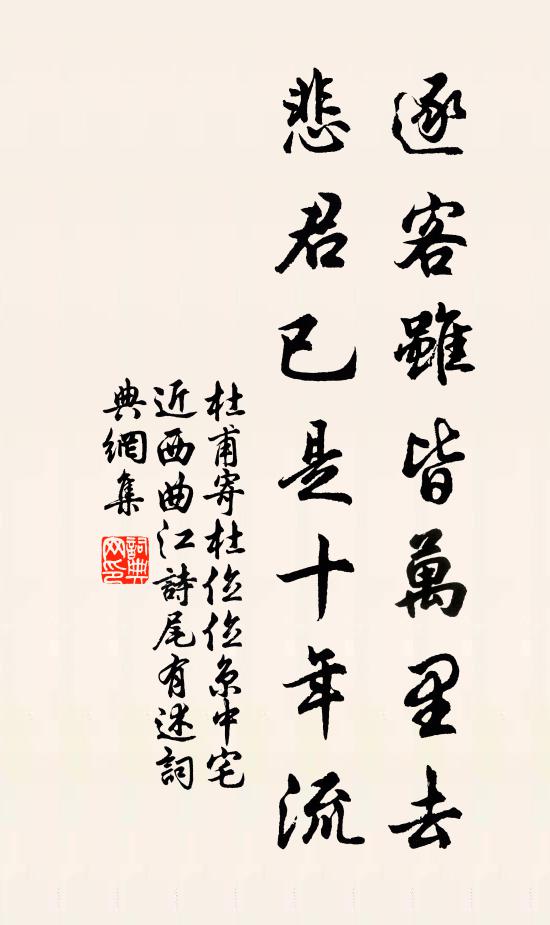 逐客雖皆萬里去
悲君已是十年流
杜甫寄杜位位京中宅
近西曲江詩尾有述詞
典網集
詞典網印